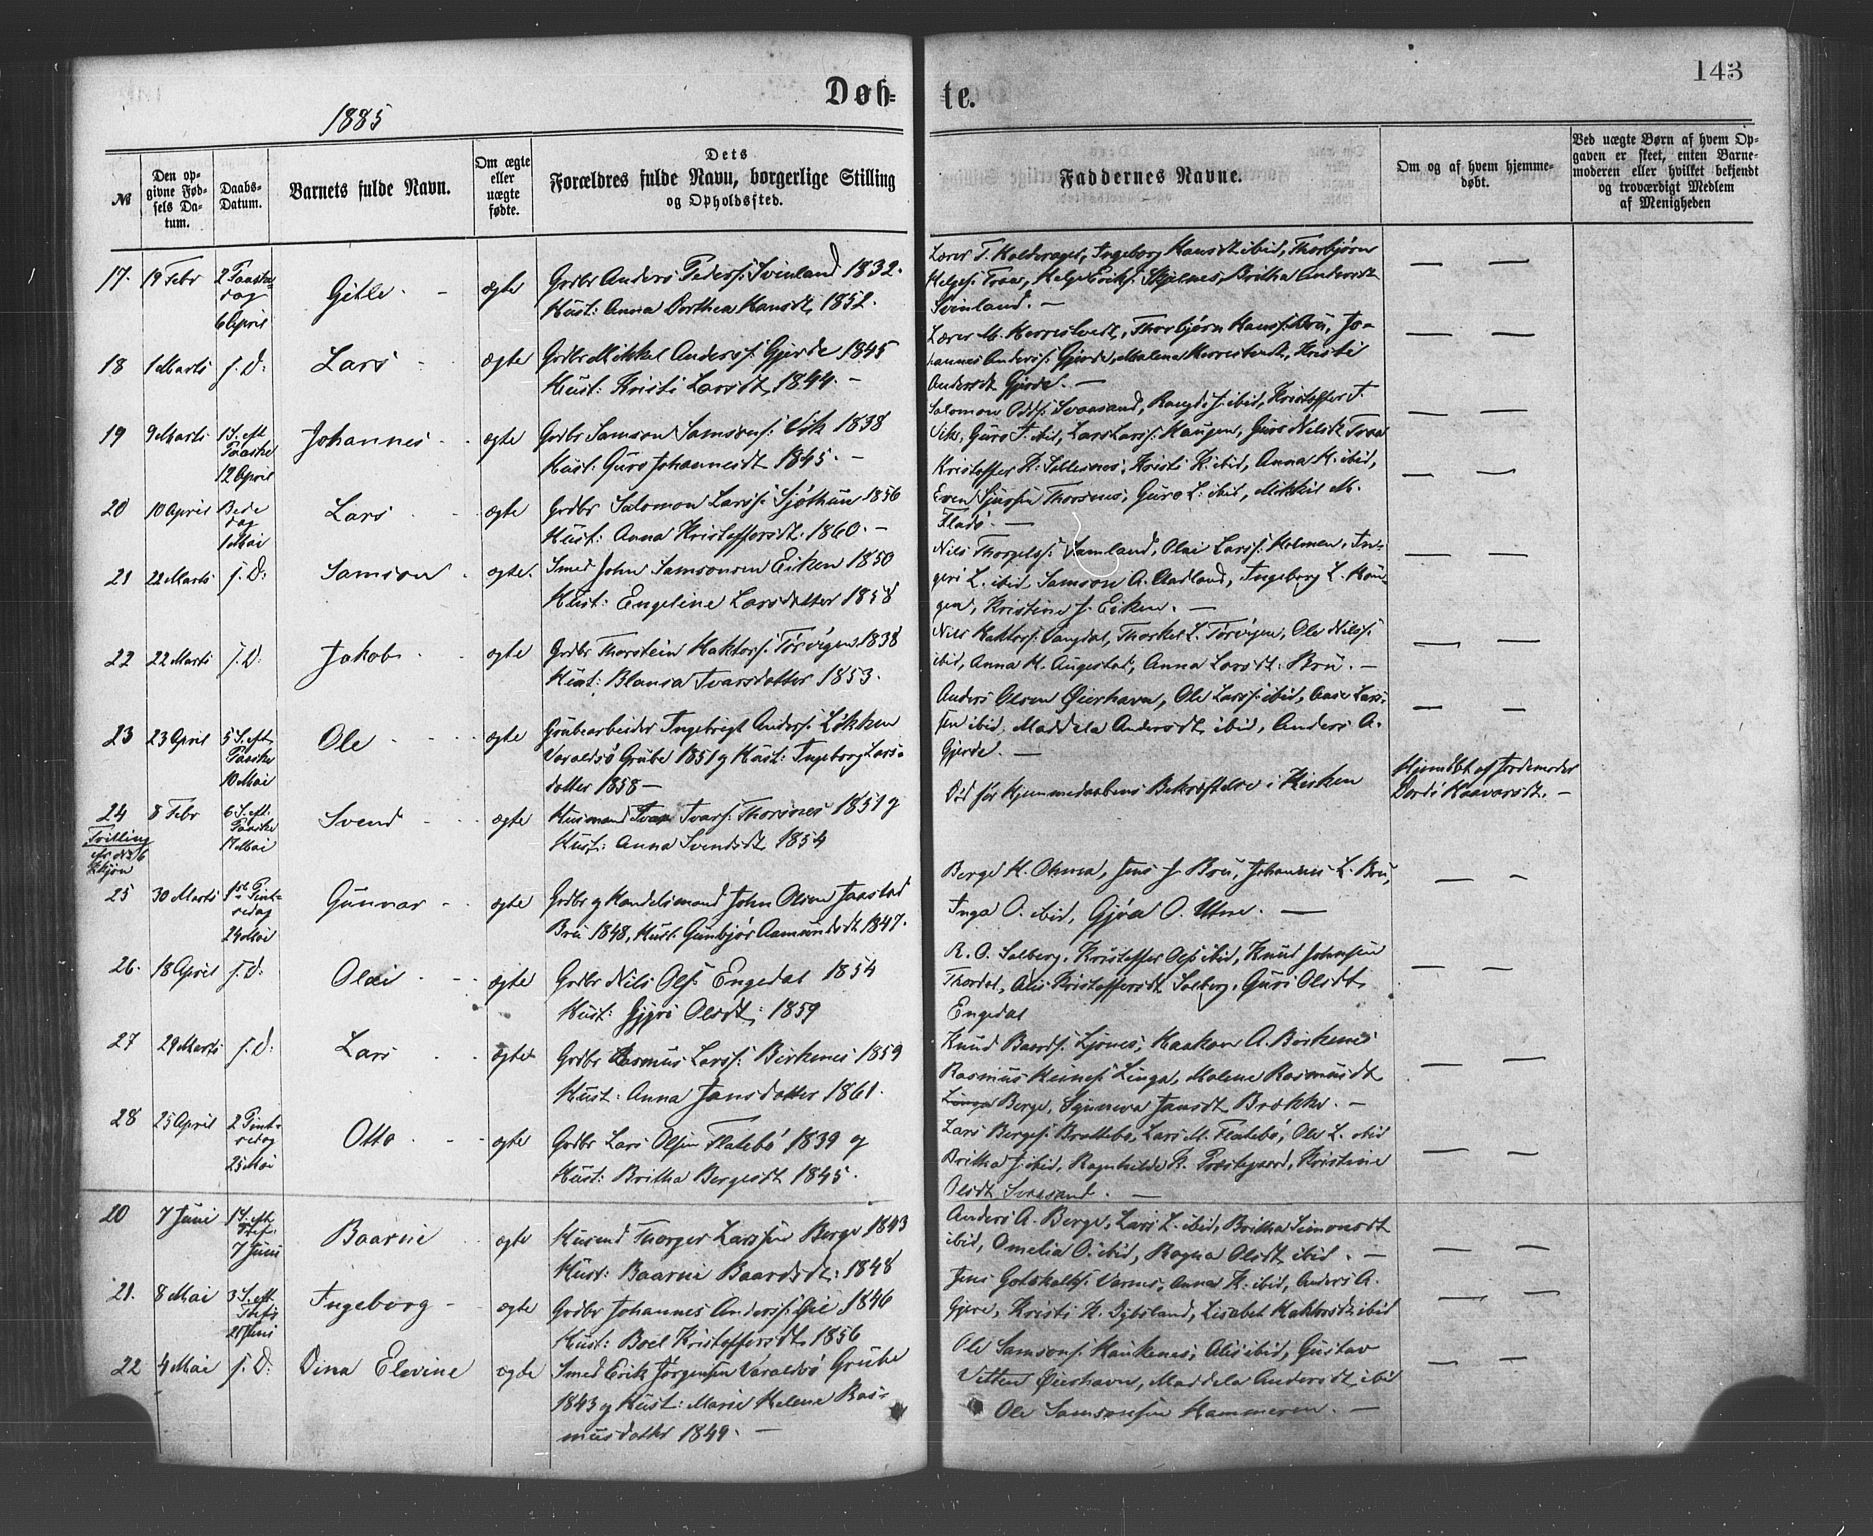 143
Døb-
te.
1885
№
Den opgivne Fødsels Datum.
Daabs-Datum.
Barnets fulde Navn.
Om ægte eller uægte fødte.
Dets Forældres fulde Navn, borgerlige Stilling og Opholdssted.
Faddernes Navne.
Om og af hvem hjemmedøbt.
Ved uægte Børn af hvem Opgaven er skeet, enten Barnemoderen eller hvilket bekjendt og troværdigt Medlem af Menigheden
17. 19 Febr 2 Paaskedag 6 April Gitle - ægte
Grdbr Anders Peders: Svinland 1832.
Hust: Anna Dorthea Hansdt, 1852.
Ingeborg Hansdt ibid, Thorbjørn
Britha Andersdt
Svinland. —
18 1 Marts s. D: Lars ægte
Grdbr Mikkel Anders: Gjerde 1845
Hust: Kristi Larsdt, 1844. —
Thorbjørn Hanss: Bru, Jo-
hannes Anderss: Gjerde, Malena Kristi
Andersdt Gjerde. —
19 9 Marts 1 S. eft. Paaske 12 April Johannes ægte
Grdbr Samson Samsons: Vik 1838
Hust: Guro Johannesdt 1845. —
Salomon Svaasand, ibid, Kristoffer T.
Vik, Guro T. ibid, Lars Larss: Haugen, Guro Nilsdt Traa
20 10 April Bededag 1 Mai Lars ægte
Grdbr Salomon Larss: Sjøthun 1856
Hust: Anna Kristoffersdt. 1860. —
Kristoffer K: Kristi K. ibid, Anna K. ibid,
Even Thorsnes, Guro L: ibid, Mikkel M.
21 22 Marts s. D: Samson ægte.
Smed John Samsonsen Eiken 1850
Hust: Engeline Larsdatter 1858
Nils Samland, Olai Larss: Holmen, In-
geri L. ibid Samson A. Aadland, Ingeborg L. Hau-
gen, Kristine J. Eiken. —
22 22 Marts s. D: Jakob ægte
Grdbr Thorstein Haktors: Tørvigen 1838
Hust: Blansa Ivarsdatter 1853.
Nils Haktors: Vangdal, Thorkel L. Tørvigen, Ole Nilss:
ibid, Anna H. Augestad, Anna Larsdt. Bru. —
23 23 April 5 S. eft. Paaske 10 Mai Ole ægte
Grubearbeider Ingebrigt Anders: Løkken
Varaldsø Grube 1851 g Hust: Ingeborg Lars-
datter 1858 —
Anders Olsen Øierhavn, Ole Larss: ibid, Aase Lars-
ibid, Maddela Andersdt ibid, Anders A.
Gjerde. —
24 8 Febr 6 S. eft. Paaske 17 Mai Svend ægte
Tvilling
Husmand Ivars: Thorsnes 1851 g
Hust: Anna Svendsdt 1854
Død før Hjemmedaabens Bekræftelse i Kirken
Hjemdbt af Jordemoder
25 30 Marts 1ste Pintsedag 24 Mai Gunnar ægte
Grdbr g Handelsmand John Olsen Jaastad
Bru 1848, Hust: Gunbjør Aamundsdt 1847.
Berge H. Jens J. Bru, Johannes L. Bru,
Inga O. ibid, Gjøa O. Utne. —
26. 18 April s. D: Olai ægte
Grdbr Nils Ols: Engedal 1854
Hust: Olsdt, 1859
R. O. Solberg, Kristoffer Ols: ibid, Knud Johnsen
Kristoffersdt Solberg, Guri Olsdt
Engedal
27 29 Marts s. D: Lars ægte
Grdbr Rasmus Larss: Birkenes 1859
Hust: Anna Jansdatter 1861.
Knud Baards: Ljones, Haakon A. Birkenes
Rasmus Linga, Malene Rasmusdt
Linga Berge, Synneva Jansdt Brække. —
28 25 April 2 Pintsedag 25 Mai Otto ægte
Grdbr Lars Olsen Flatebø 1839 g
Hust: Britha Bergesdt 1845.
Lars Berges: Brattebø, Lars M. Flatebø, Ole L. ibid
Britha J. ibid, Ragnhilde K. Præstegaard, Kristine
Olsdt Svaasand. —
20 7 Juni 1 S. eft. Tref. 7 Juni Baarni ægte
Husmd Thorger Larssen Berge 1843
Hust: Baarni Baardsdt: 1848
Anders A. Berge, Lars L. ibid, Britha Simonsdt
ibid, Omelia O. ibid, Ragna Olsdt ibid. —
21. 8 Mai 3 S. eft. Tref. 21 Juni Ingeborg ægte
Grdbr Johannes Anders: Øie 1846
Hust: Boel Kristoffersdt 1856
Jens Gotskalks: Varnes, Anna K. ibid, Anders A.
Kristi K. Lisabet Haktorsdt ibid
22 4 Mai s. D: Dina Elevine ægte
Smed Erik Jørgensen Varaldsø Grube
1843 g Hust: Marie Helene Ras-
musdatter 1849. —
Ole Samsons: Haukenes, Alis ibid, Gustav
Vitten Øierhavn, Maddela Andersdt ibid
Ole Samsonsen Hammeren. —